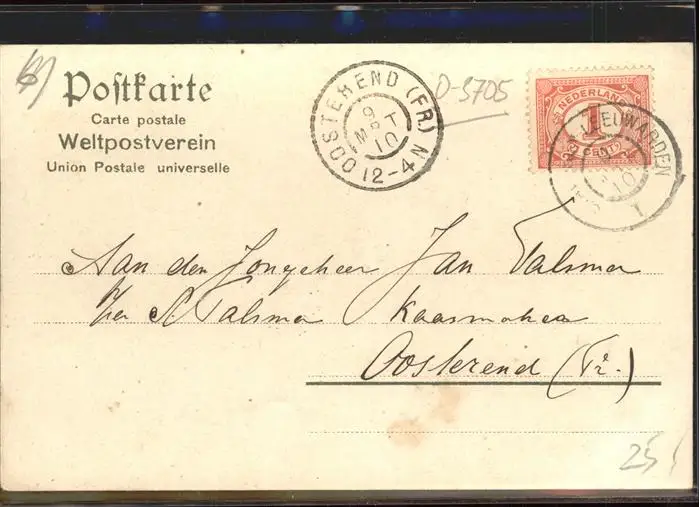 Postkarte
Carte postale
Weltpostverein
Union Postale universelle
OOSTEREND (FR.)
9
MRT
10
12-4 N
D-3705
NEDERLAND
1
CENT
LEEUWARDEN
9
10
T
Aan den Jongeheer Jan Talsma
per A. Talsma Kaasmaker
Oosterend (Fr.)
25